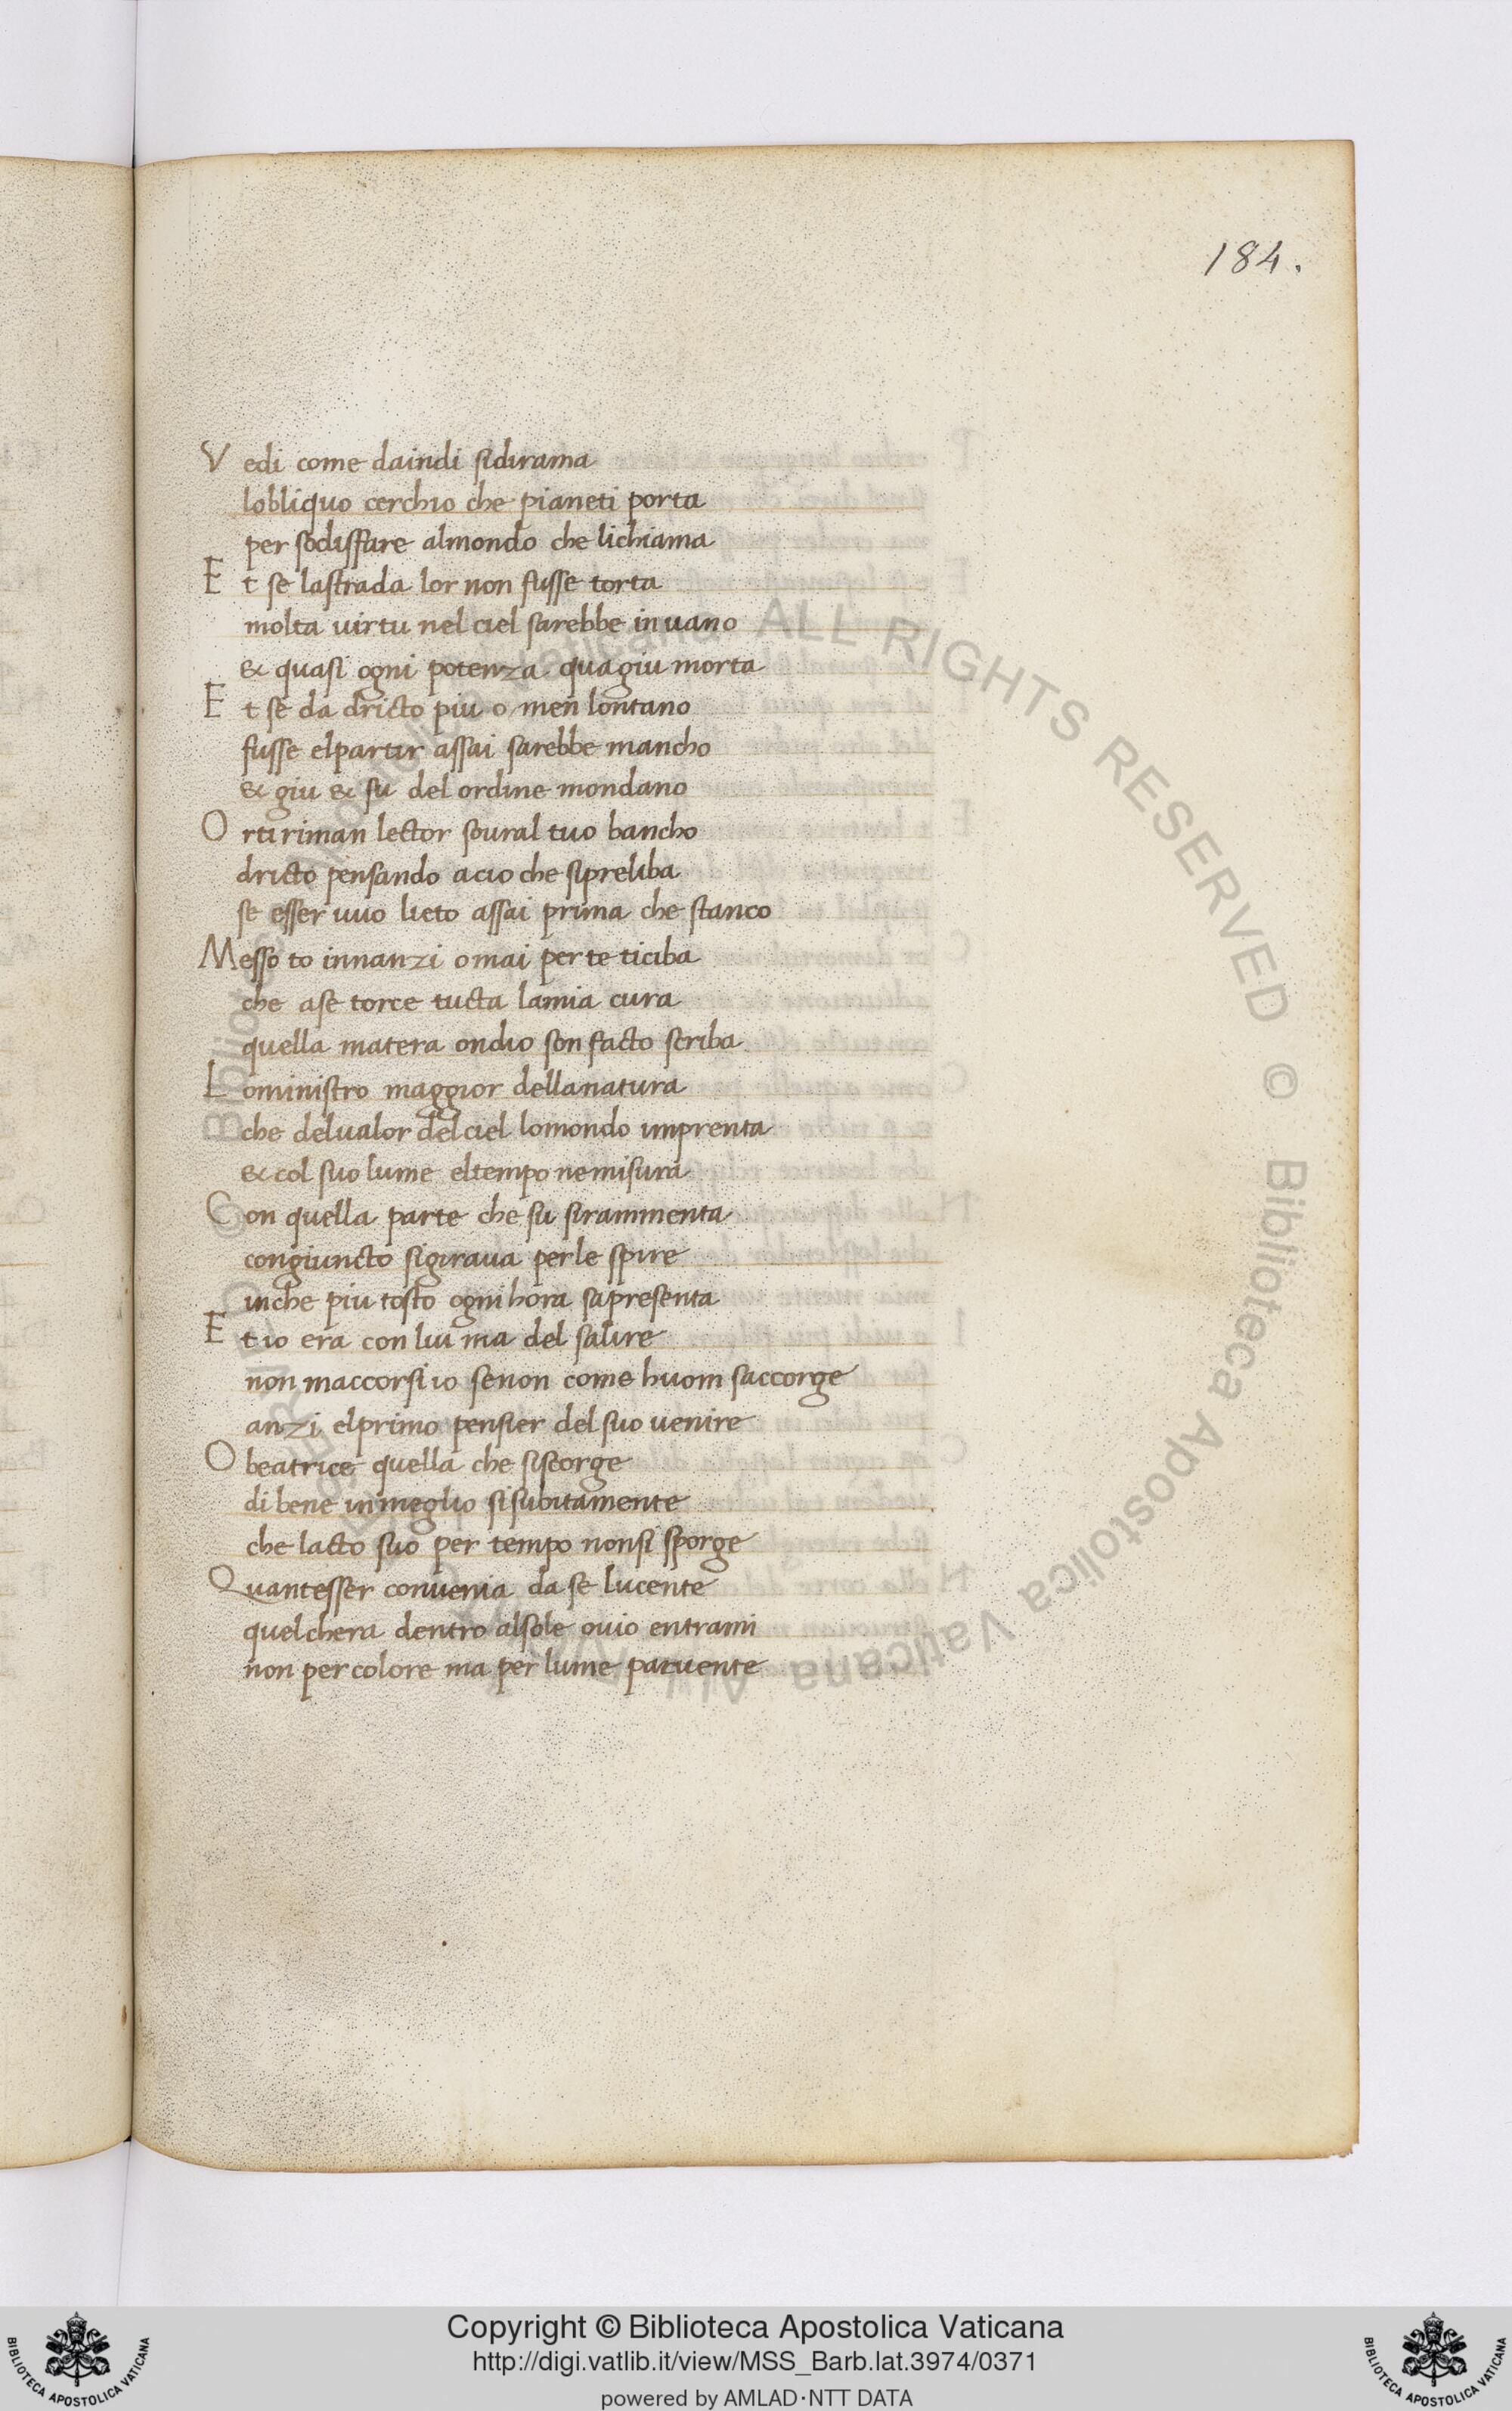 184.
Vedi come daindi sidirama
lobliquo cerchio che pianeti porta
per sodisffare almondo che lichiama
Et se lastrada lor non fusse torta
molta virtu nel ciel sarebbe in uano
& quasi ogni potenza quagiu morta
Et se da dricto piu o men lontano
fusse elpartir assai sarebbe mancho
& giu & su del ordine mondano
Orti riman lector soural tuo bancho
dricto pensando acio che sipreliba
se esser vuo lieto assai prima che stanco
Messo to innanzi omai per te ticiba
che ase torce tucta lamia cura
quella matera ondio son facto scriba
Lo ministro maggior dellanatura
che delualor del ciel lomondo imprenta
& col suo lume eltempo ne misura
Con quella parte che su sirammenta
congiuncto sigiraua perle spire
inche piu tosto ognihora sapresenta
Et io era con lui ma del salire
non maccorsi io senon come huom saccorge
anzi elprimo pensier del suo uenire
O beatrice quella che siscorge
di bene inmeglio sisubitamente
che lacto suo per tempo nonsi sporge
Quantesser conuenia da se lucente
quelchera dentro alsole ouio entrami
non per colore ma per lume paruente
Biblioteca Apostolica Vaticana ALL RIGHTS RESERVED © Biblioteca Apostolica Vaticana
Copyright © Biblioteca Apostolica Vaticana
http://digi.vatlib.it/view/MSS_Barb.lat.3974/0371
powered by AMLAD·NTT DATA
BIBLIOTECA APOSTOLICA VATICANA
BIBLIOTECA APOSTOLICA VATICANA